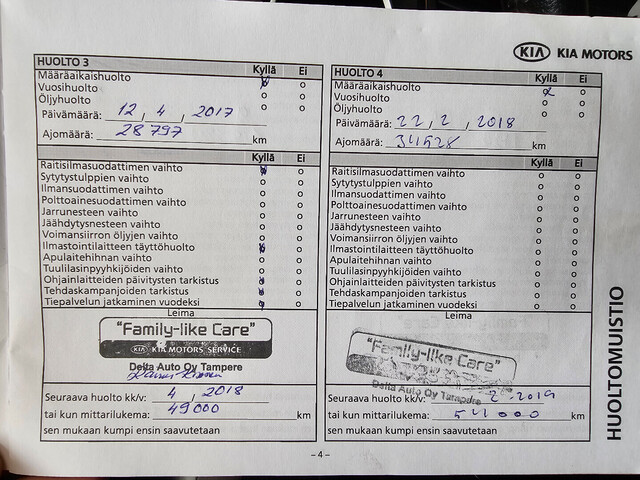 KIA KIA MOTORS
HUOLTO 3
Kyllä Ei
Määräaikaishuolto o o
Vuosihuolto o o
Öljyhuolto o o
Päivämäärä: 12, 4, 2017
Ajomäärä: 28 797 km
Kyllä Ei
Raitisilmasuodattimen vaihto o o
Sytytystulppien vaihto o o
Ilmansuodattimen vaihto o o
Polttoainesuodattimen vaihto o o
Jarrunesteen vaihto o o
Jäähdytysnesteen vaihto o o
Voimansiirron öljyjen vaihto o o
Ilmastointilaitteen täyttöhuolto o o
Apulaitehihnan vaihto o o
Tuulilasinpyyhkijöiden vaihto o o
Ohjainlaitteiden päivitysten tarkistus o o
Tehdaskampanjoiden tarkistus o o
Tiepalvelun jatkaminen vuodeksi o o
Leima
"Family-like Care"
KIA KIA MOTORS SERVICE
Delta Auto Oy Tampere
Seuraava huolto kk/v: 4, 2018
tai kun mittarilukema: 49000 km
sen mukaan kumpi ensin saavutetaan
HUOLTO 4
Kyllä Ei
Määräaikaishuolto o o
Vuosihuolto o o
Öljyhuolto o o
Päivämäärä: 22, 2, 2018
Ajomäärä: km
Kyllä Ei
Raitisilmasuodattimen vaihto o o
Sytytystulppien vaihto o o
Ilmansuodattimen vaihto o o
Polttoainesuodattimen vaihto o o
Jarrunesteen vaihto o o
Jäähdytysnesteen vaihto o o
Voimansiirron öljyjen vaihto o o
Ilmastointilaitteen täyttöhuolto o o
Apulaitehihnan vaihto o o
Tuulilasinpyyhkijöiden vaihto o o
Ohjainlaitteiden päivitysten tarkistus o o
Tehdaskampanjoiden tarkistus o o
Tiepalvelun jatkaminen vuodeksi o o
Leima
"Family-like Care"
Delta Auto Oy Tampere
Seuraava huolto kk/v: 2 - 2019
tai kun mittarilukema: 54000 km
sen mukaan kumpi ensin saavutetaan
HUOLTOMUISTIO
- 4 -